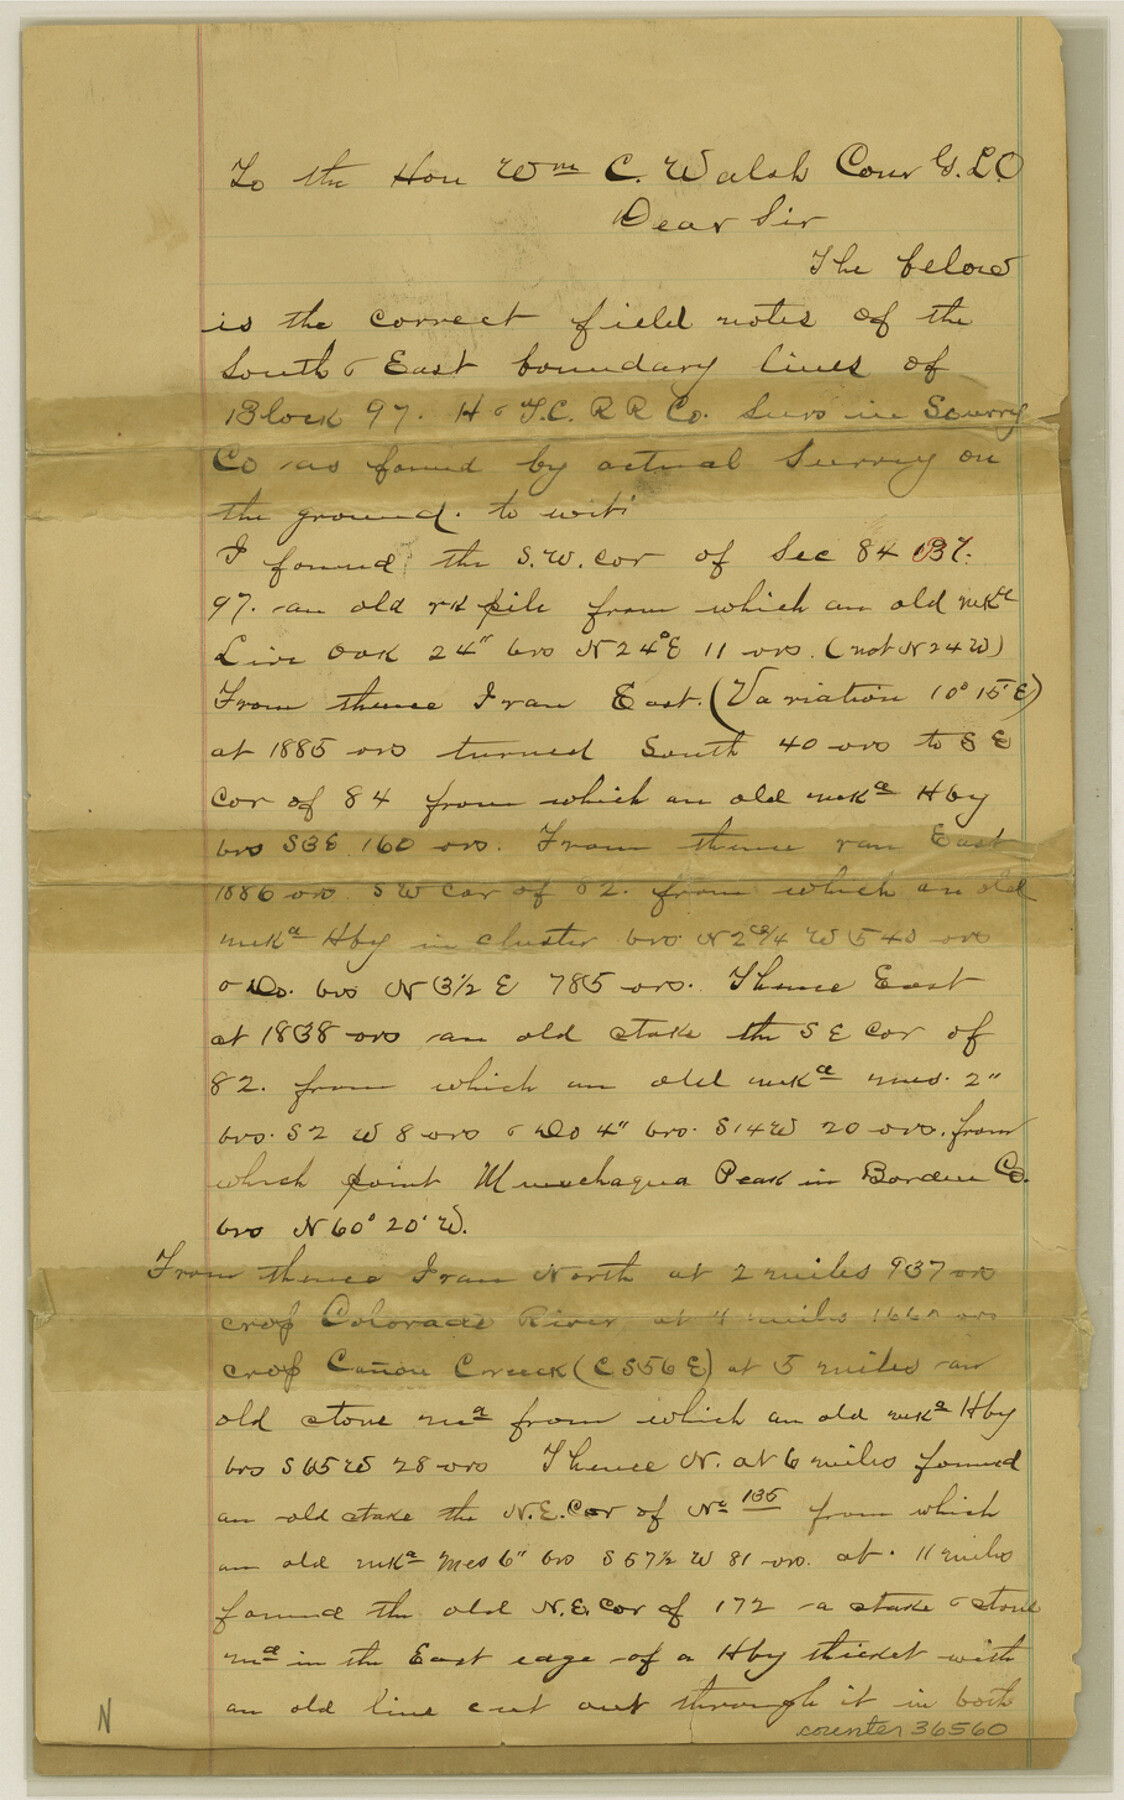 To the Hon Wm C. Walsh Comr G.L.O
Dear Sir
The below
is the correct field notes of the
South & East boundary lines of
Block 97. H & T.C. RR Co. Survs in Scurry
Co as found by actual Survey on
the ground. to wit:
I found the S.W. cor of Sec 84 Bl.
97. an old rk pile from which an old mkd
Live Oak 24" brs N24°E 11 vrs. (not N24W)
From thence I ran East. (Variation 10° 15' E)
at 1885 vrs turned South 40 vrs to S E
cor of 84 from which an old mkd Hby
brs S3E 160 vrs. From thence ran East
1886 vrs S W cor of 82. from which an old
mkd Hby in cluster brs N2 3/4 W 540 vrs
& Do. brs N 3 1/2 E 785 vrs. Thence East
at 1838 vrs an old stake the S E cor of
82. from which an old mkd mes. 2"
brs. S2 W 8 vrs & Do 4" brs. S14W 20 vrs. from
which point Muchaqua Peak in Borden Co.
brs N60° 20' W.
From thence I ran North at 2 miles 937 vrs
crosf Colorado River, at 4 miles vrs
crosf Cañon Creeck (C S56 E) at 5 miles an
old stone md from which an old mkd Hby
brs S65W 28 vrs Thence N. at 6 miles found
an old stake the N.E. Cor of No 135 from which
an old mkd Mes 6" brs S 57 1/2 W 81 vrs. at. 11 miles
found the old N.E. Cor of 172 a stake & stone
md in the East edge of a Hby thicket with
an old line cut out through it in both
counter 36560
N